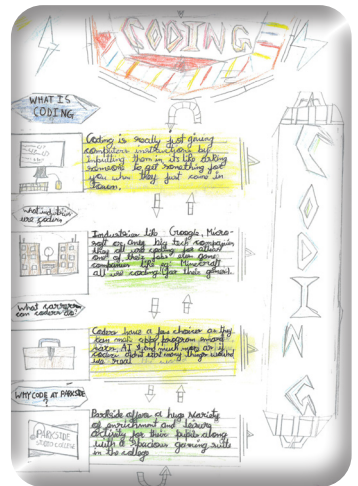 CODING
WHAT IS
CODING
Coding is really just giving
computers instructions by
inputting them in its like asking
someone to get something for
you when they just come in
what industries
use coders
Industries like: Google, Micro-
soft or any big tech companies
they all use coding for atleast
one of their jobs even game
companies like eg: Minecraft
all use coding (for their games).
What carrers
can coders do?
Coders have a few choices as they
can make apps, program smart
cars, AI and much more as if
coders didnt exist many things would
be real
WHY CODE AT PARKSIDE
?
PARKSIDE
Parkside offers a huge variety
of enrichment and
activity for their pupils along
with a spacious gaming suite
in the college
CODING